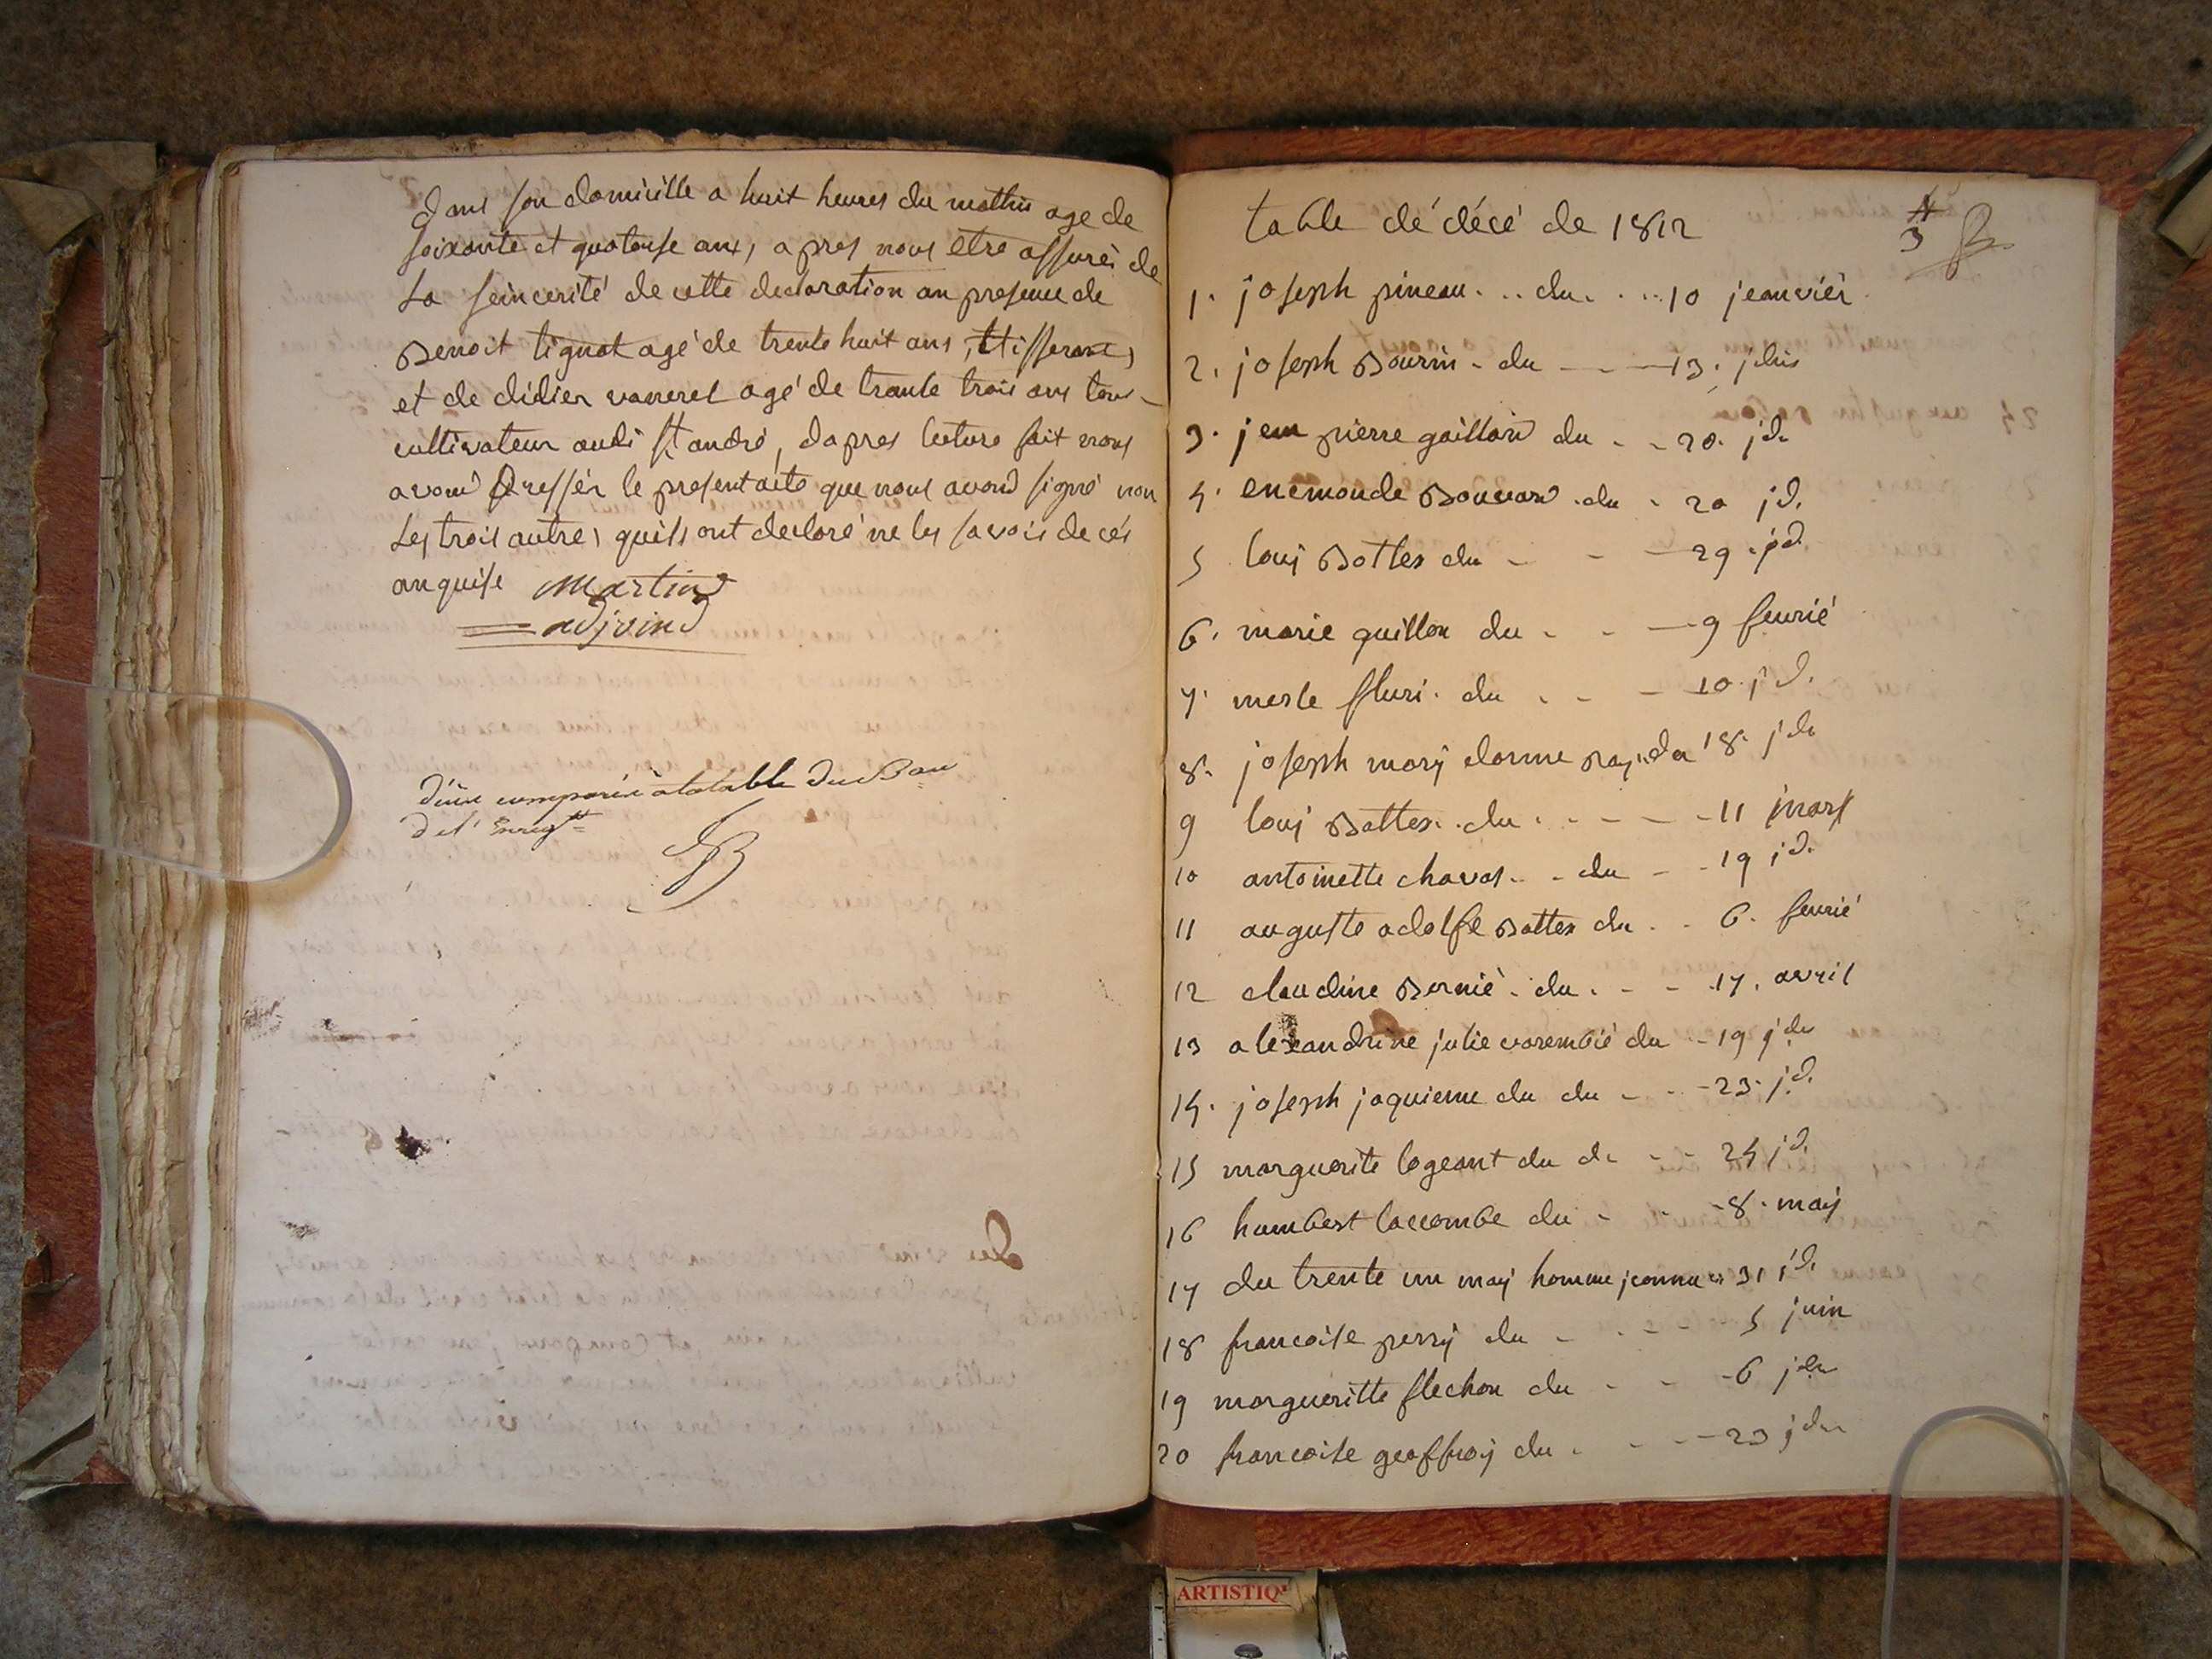 dans son domicille a huit heures du mathin age de
soixante et quatorse ans, apres nous etre assurés de
La seincerité de cette declaration an presence de
Benoit tignat agé de trente huit ans, ttisserant,
et de didier vanerel agé de trante trois ans tous
cultivateur audi st andré, dapres lecture fait nous
avond Dressér le present acte que nous avond signé non
Les trois autres quils ont declaré ne les savoir de cés
anquise Martin
adjoind
table du Bau
de l'Enregtt
table dé décé de 1812
3
1. joseph pineau du 10 jeanvier
2. joseph Bourin du 13. jdu
3. jean pierre gaillard du 20. jd.
4. enemonde Bouvard du 20 jd.
5 louj Botter du 29 jd
6. marie guillon du 9 feuvrié
7. merle fluri. du 10. jd.
8. joseph marij du 18. jdu
9 louj Botter du 11 mars
10 antoinette chavas du 19 jd.
11 auguste adolfe Botter du 6. fevrié
12 claudine Bernié du 17. avril
13 alexandrine julie varembié du 19 jdu
14. joseph jaquieme du du 23. jd.
15 marguerite logeant du du 24 jd.
16 humbert laccombe du 8. maij
17 du trente un maij homme jconnu 31 jd.
18 francoise perrij du 5 juin
19 margueritte flechon du 6 jdu
20 francoise geoffroij du 23 jdu
ARTISTIQ